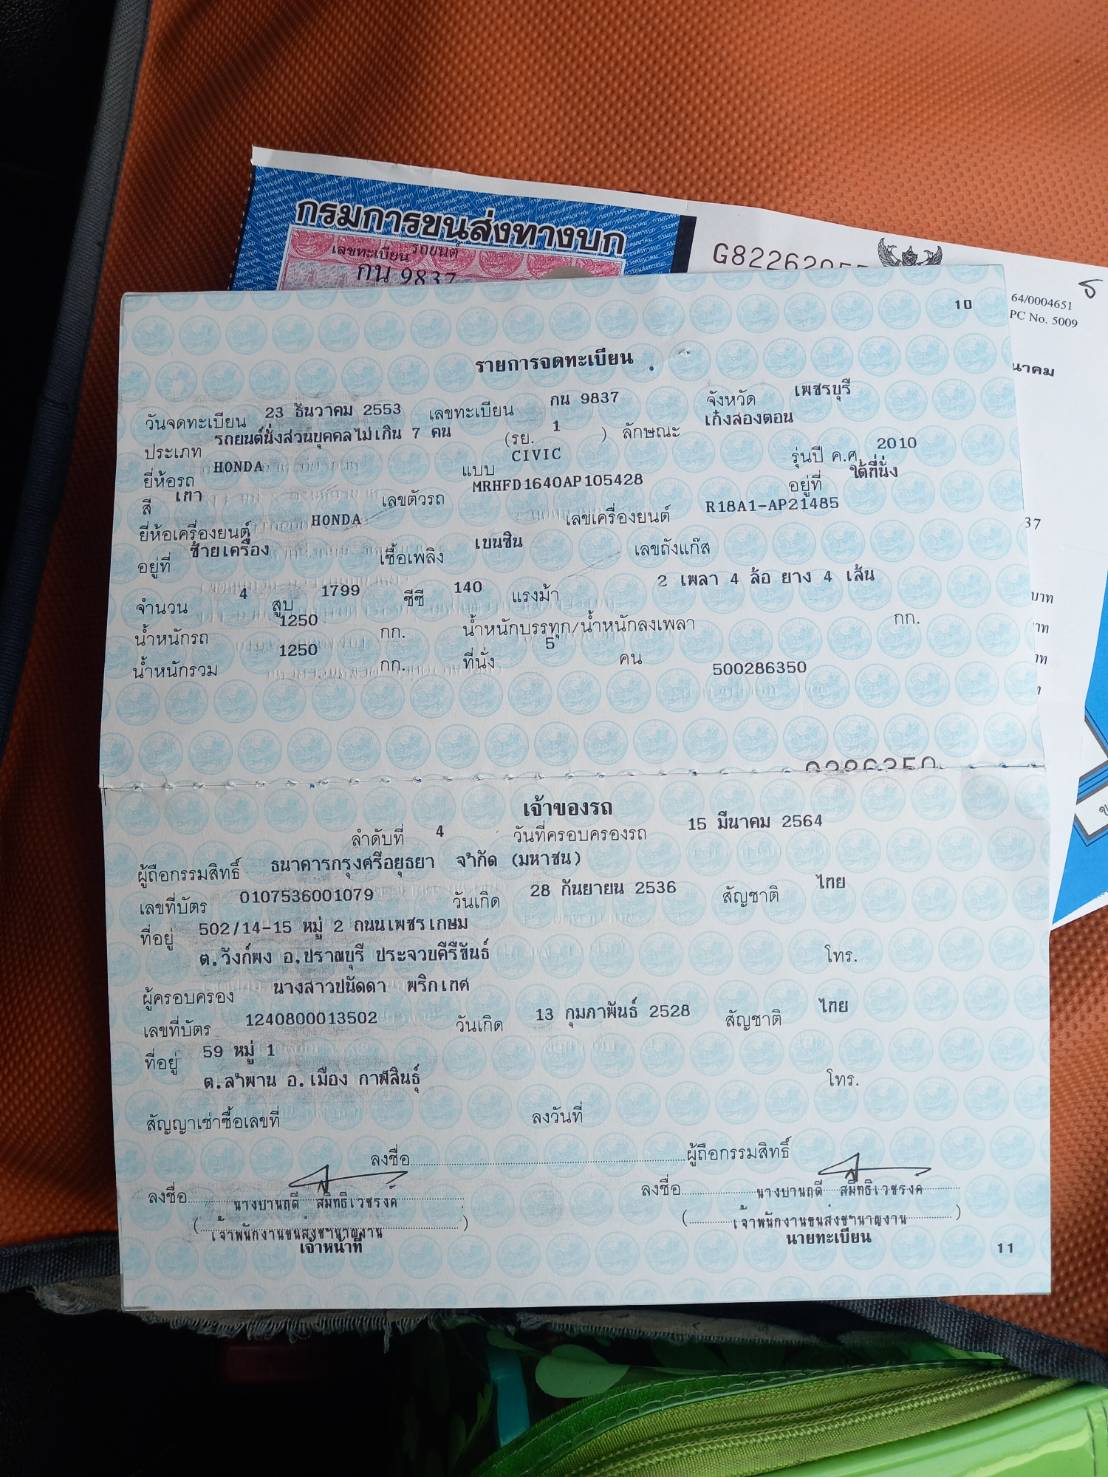 กรมการขนส่งทางบก
เลขทะเบียนรถยนต์
กน 9837
64/0004651
PC No. 5009
10
รายการจดทะเบียน
วันจดทะเบียน 23 ธันวาคม 2553 เลขทะเบียน กน 9837 จังหวัด เพชรบุรี
ประเภท รถยนต์นั่งส่วนบุคคลไม่เกิน 7 คน (รย. 1 ) ลักษณะ เก๋งสองตอน
ยี่ห้อรถ HONDA แบบ CIVIC รุ่นปี ค.ศ. 2010
สี เทา เลขตัวรถ MRHFD1640AP105428 อยู่ที่ ใต้ที่นั่ง
ยี่ห้อเครื่องยนต์ HONDA เลขเครื่องยนต์ R18A1-AP21485
อยู่ที่ ซ้ายเครื่อง เชื้อเพลิง เบนซิน เลขถังแก๊ส
จำนวน 4 สูบ 1799 ซีซี 140 แรงม้า 2 เพลา 4 ล้อ ยาง 4 เส้น
น้ำหนักรถ 1250 กก. น้ำหนักบรรทุก/น้ำหนักลงเพลา กก.
น้ำหนักรวม 1250 กก. ที่นั่ง 5 คน 500286350
เจ้าของรถ
ลำดับที่ 4 วันที่ครอบครองรถ 15 มีนาคม 2564
ผู้ถือกรรมสิทธิ์ ธนาคารกรุงศรีอยุธยา จำกัด (มหาชน)
เลขที่บัตร 0107536001079 วันเกิด 28 กันยายน 2536 สัญชาติ ไทย
ที่อยู่ 502/14-15 หมู่ 2 ถนนเพชรเกษม
ต.วังก์พง อ.ปราณบุรี ประจวบคีรีขันธ์ โทร.
ผู้ครอบครอง นางสาวปนัดดา พริกเทศ
เลขที่บัตร 1240800013502 วันเกิด 13 กุมภาพันธ์ 2528 สัญชาติ ไทย
ที่อยู่ 59 หมู่ 1
ต.ลำพาน อ.เมือง กาฬสินธุ์ โทร.
สัญญาเช่าซื้อเลขที่ ลงวันที่
ลงชื่อ ผู้ถือกรรมสิทธิ์
ลงชื่อ นางบานฤดี สมิทธิเวชรงค์ ลงชื่อ นางบานฤดี สมิทธิเวชรงค์
(เจ้าพนักงานขนส่งชำนาญงาน) (เจ้าพนักงานขนส่งชำนาญงาน)
เจ้าหน้าที่ นายทะเบียน
11